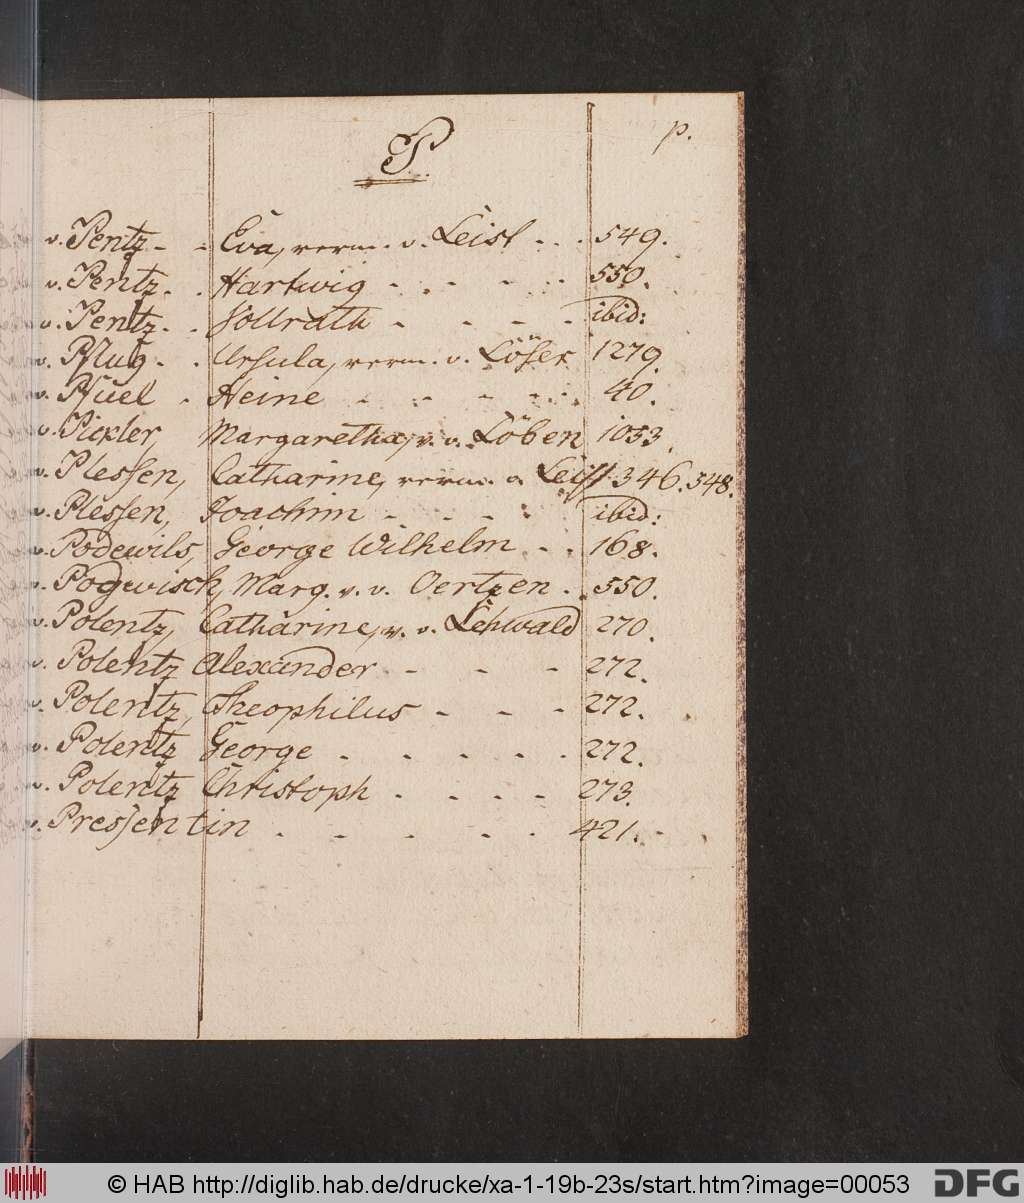 P. p.
v. Pentz - - Eva, verm. v. Leist - - . 549.
v. Pentz - . Hartwig - - - - - 550.
v. Pentz - . Vollrath - - - - - ibid:
v. Pflug - . Ursula, verm. v. Löser 1279.
v. Pfuel - Heine - - - - - 40.
v. Pickler, Margaretha, v. v. Löben 1053.
v. Plessen, Catharine, verm. v. Leist 346. 548.
v. Plessen, Joachim - - - - ibid:
v. Podewils, George Wilhelm - . 168.
v. Pogwisch, Marg. v. v. Oertzen - . 550.
v. Polentz, Catharine, v. v. Lehwald 270.
v. Polentz Alexander - - - 272.
v. Polentz, Theophilus - - - 272.
v. Polentz George - - - - - 272.
v. Polentz Christoph - - - - 273.
v. Pressentin - - - - - 421.
© HAB http://diglib.hab.de/drucke/xa-1-19b-23s/start.htm?image=00053
DFG